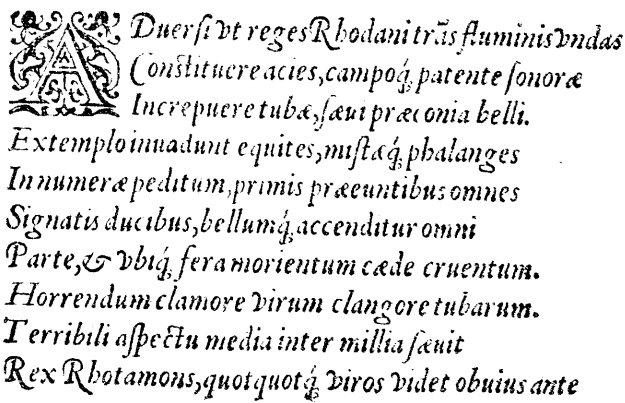 ADuersi vt reges Rhodani trãs fluminis vndas
Constituere acies, campoq́; patente sonoræ
Increpuere tubæ, sæui præconia belli.
Extemplo inuadunt equites, mistæq́; phalanges
Innumeræ peditum, primis præeuntibus omnes
Signatis ducibus, bellumq́; accenditur omni
Parte, & vbiq́; fera morientum cæde cruentum.
Horrendum clamore virum clangore tubarum.
Terribili aspectu media inter millia sæuit
Rex Rhotamons, quotquotq́; viros videt obuius ante